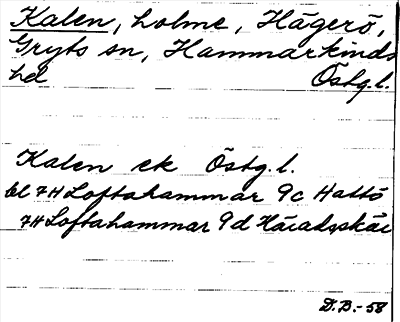 Kalen, holme, Hägerö,
Gryts sn, Hammarkinds
hd Östg. l.
Kalen ek Östg. l.
bl 7H Loftahammar 9c Hattö
7H Loftahammar 9d Häradsskär
D.B.-58